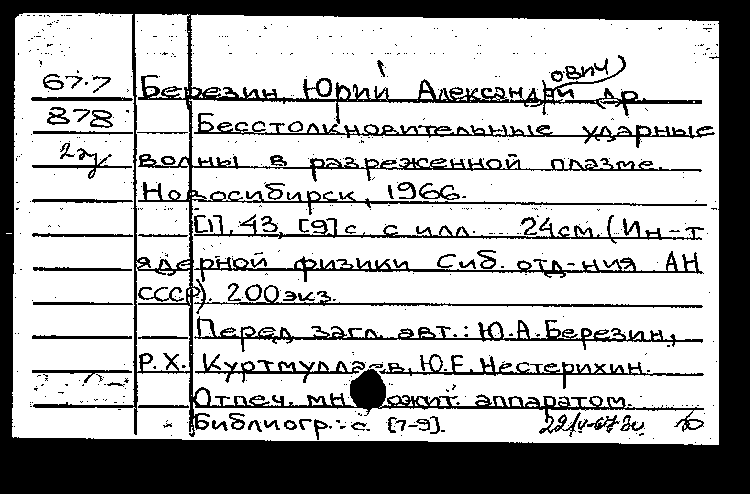 67.7 Березин, Юрий Александрович и др.
878 Бесстолкновительные ударные
волны в разреженной плазме.
Новосибирск, 1966.
[1], 43, [9] с. с илл. 24 см. (Ин-т
ядерной физики Сиб. отд-ния АН
СССР). 200 экз.
Перед загл. авт.: Ю.А. Березин,
Р.Х. Куртмуллаев, Ю.Е. Нестерихин.
Отпеч. множит. аппаратом.
Библиогр.: с. [7-9].